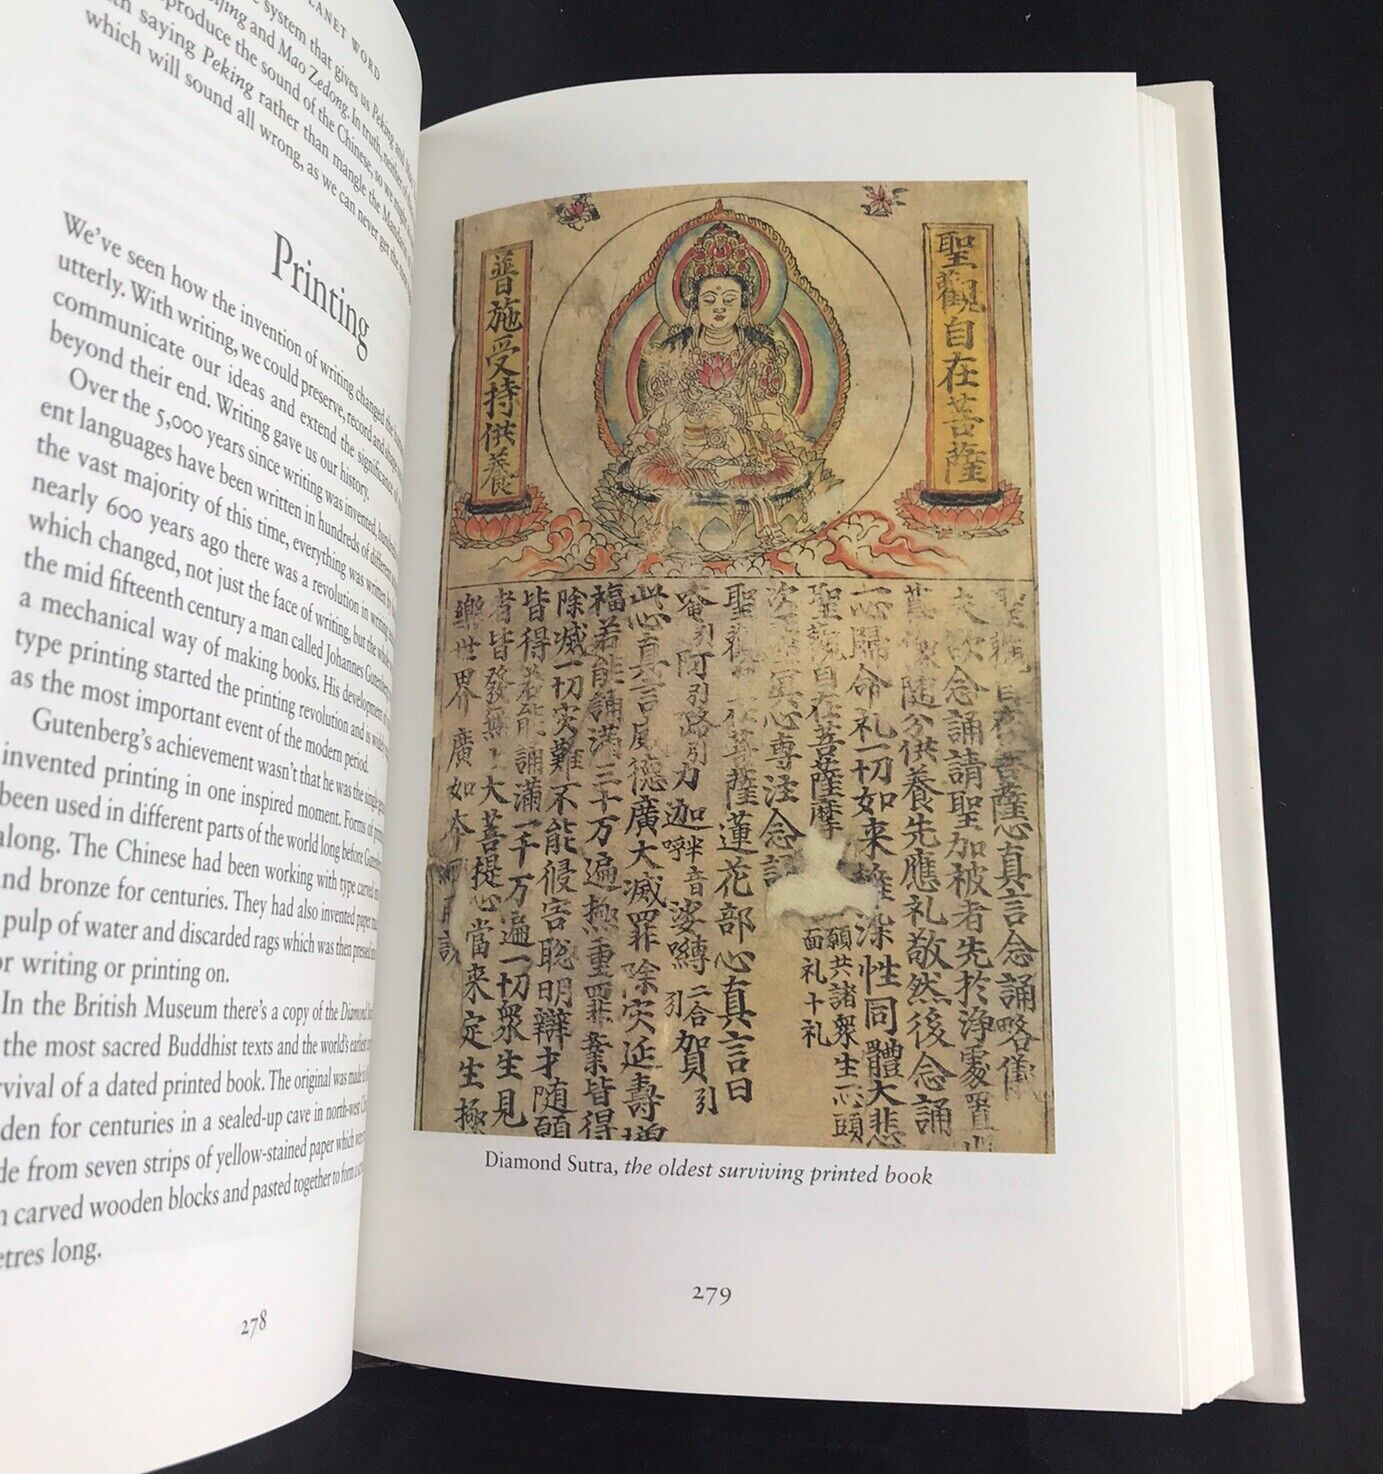 LANET WORD
system that gives us Peking and
ijing and Mao Zedong. In truth, neither of
produce the sound of the Chinese, so we might
saying Peking rather than mangle the
which will sound all wrong, as we can never get the
Printing
We've seen how the invention of writing changed the
utterly. With writing, we could preserve, record and
communicate our ideas and extend the significance of
beyond their end. Writing gave us our history.
Over the 5,000 years since writing was invented,
ent languages have been written in hundreds of different
the vast majority of this time, everything was written
nearly 600 years ago there was a revolution in writing
which changed, not just the face of writing, but the
the mid fifteenth century a man called Johannes Gutenberg
a mechanical way of making books. His development of
type printing started the printing revolution and is
as the most important event of the modern period.
Gutenberg's achievement wasn't that he was the
invented printing in one inspired moment. Forms of
been used in different parts of the world long before
along. The Chinese had been working with type carved
nd bronze for centuries. They had also invented paper
pulp of water and discarded rags which was then pressed
or writing or printing on.
In the British Museum there's a copy of the Diamond
the most sacred Buddhist texts and the world's earliest
rvival of a dated printed book. The original was made
den for centuries in a sealed-up cave in north-west
de from seven strips of yellow-stained paper which
carved wooden blocks and pasted together to form a
etres long.
278
聖觀自在菩薩
普施受持供養
聖觀自在菩薩心真言念誦略儀
夫欲念誦請聖加被者先於淨處置
像隨分供養先應礼敬然後念誦
一心歸命礼一切如來離染性同體大悲
聖觀自在菩薩摩
願共諸衆生一心頭
面礼十礼
冥心專注念誦
聖觀自在菩薩蓮花部心真言曰
唵引阿引路引力迦半音呼娑嚩二合賀引
此心真言威德廣大滅罪除灾延壽增
福若能誦滿三十万遍極重罪業皆得
除滅一切灾難不能侵害聡明辯才隨願
皆得若能誦滿一千万遍一切衆生見
者皆發無上大菩提心當來定生極
樂世界廣如本經所說
Diamond Sutra, the oldest surviving printed book
279